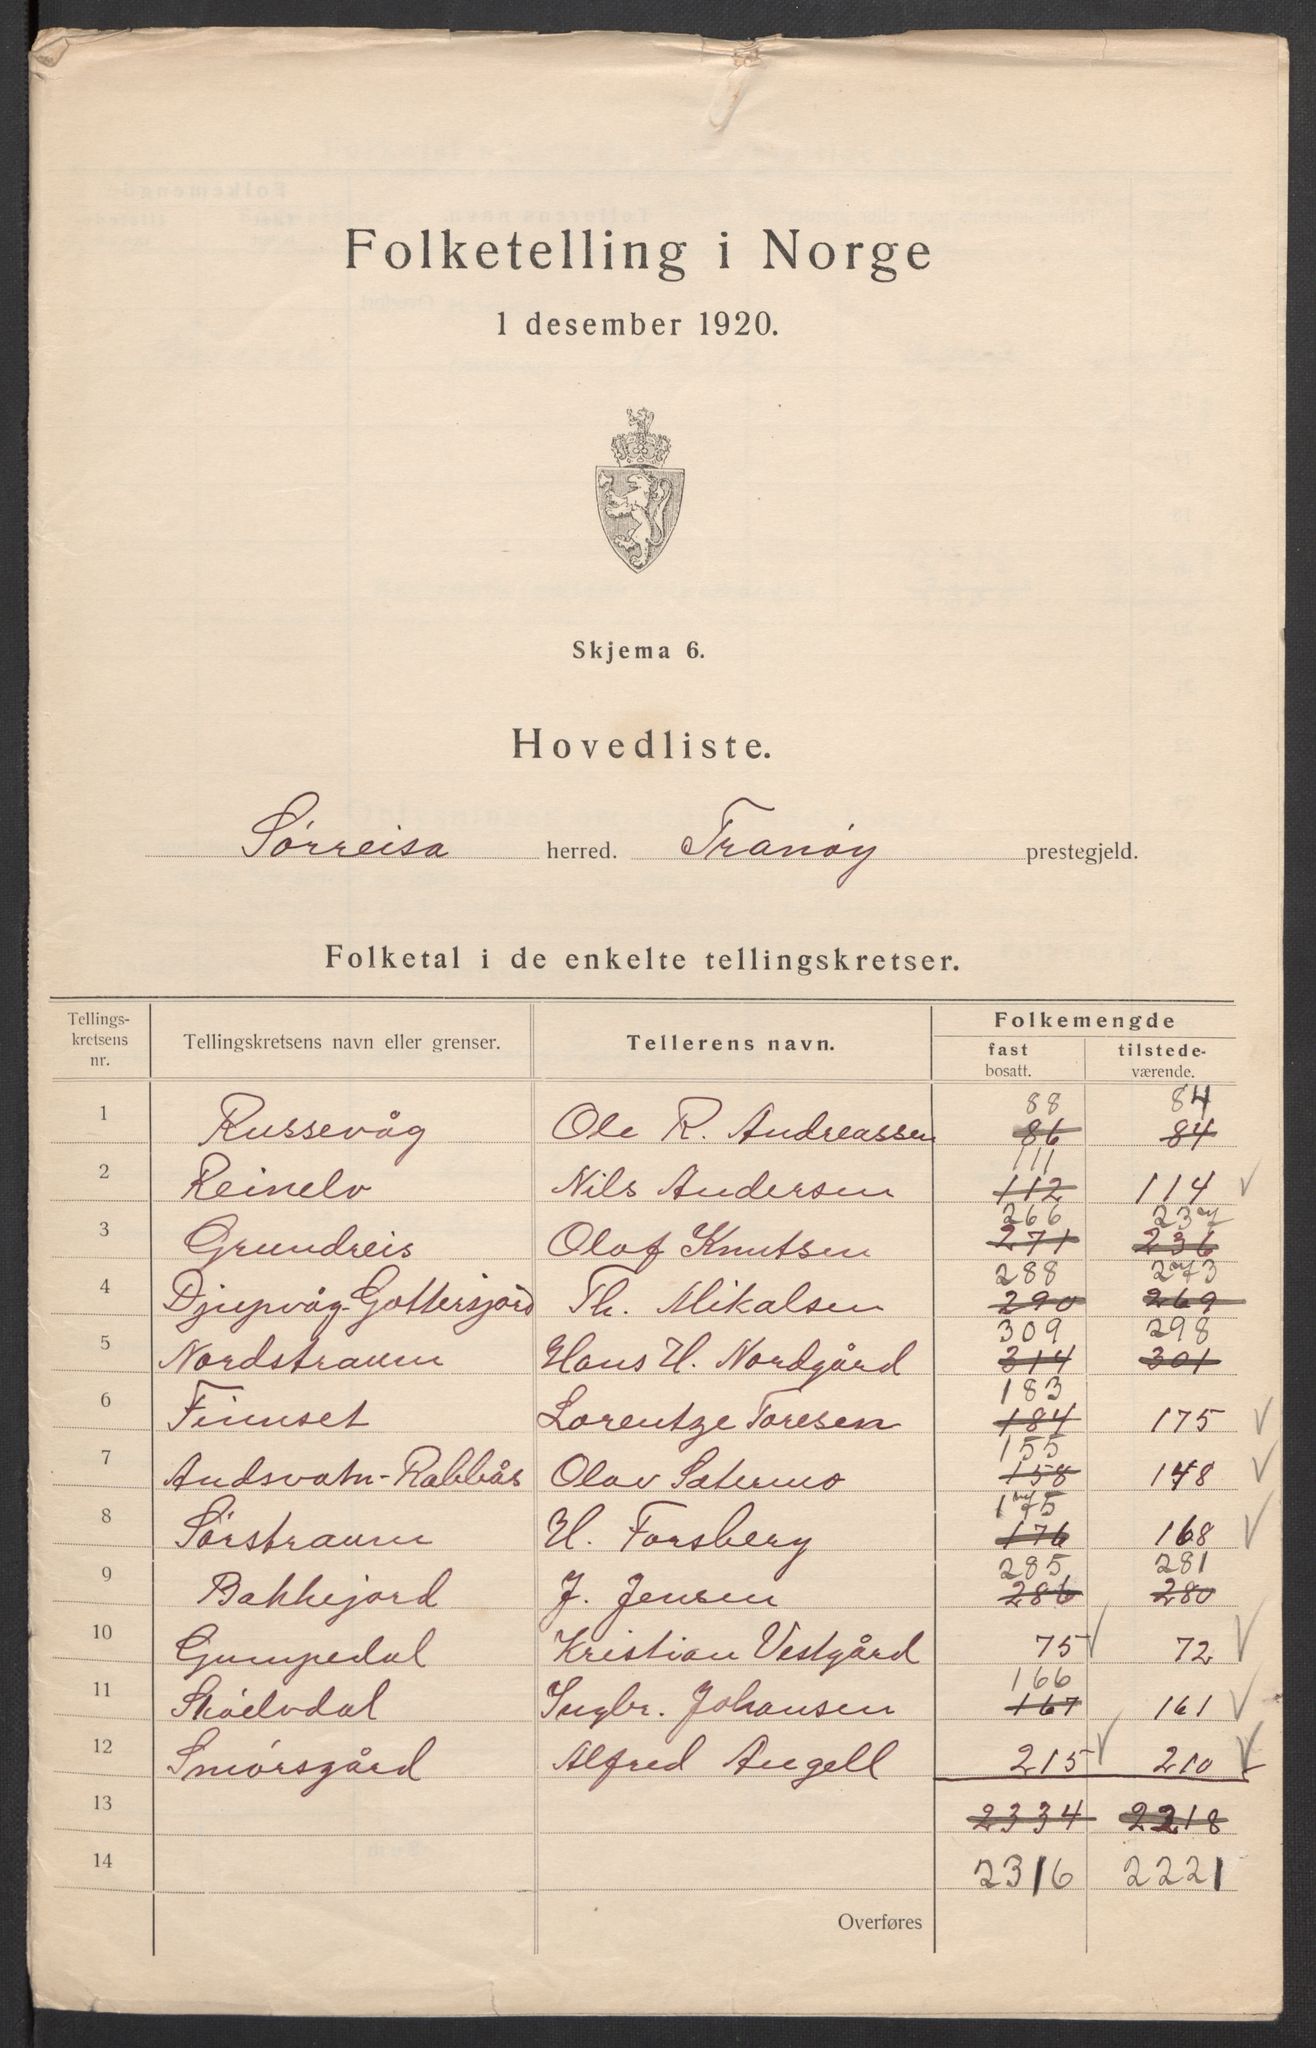 Folketelling i Norge
1 desember 1920.
Skjema 6.
Hovedliste.
Sørreisa herred. Tranøy prestegjeld.
Folketal i de enkelte tellingskretser.
Tellings-kretsens nr. Tellingskretsens navn eller grenser. Tellerens navn. Folkemengde
fast bosatt. tilstede-værende.
88 84
1 Russevåg Ole R. Andreassen 86 84
111
2 Reinelv Nils Andersen 112 114
266 237
3 Grundreis Olaf Knutsen 271 236
288 273
4 Djupvåg-Gottersjord Th. Mikalsen 290 269
309 298
5 Nordstraum Hans H. Nordgård 314 301
183
6 Finnset Lorentze Toresen 184 175
155
7 Andsvatn-Rabbås Olav Sætermo 158 148
175
8 Sørstraum H. Forsberg 176 168
285 281
9 Bakkejord J. Jensen 286 280
10 Gumpedal Kristian Vestgård 75 72
166
11 Skøelvdal Ingbr. Johansen 167 161
12 Smørsgård Alfred Angell 215 210
13 2334 2218
14 2316 2221
Overføres